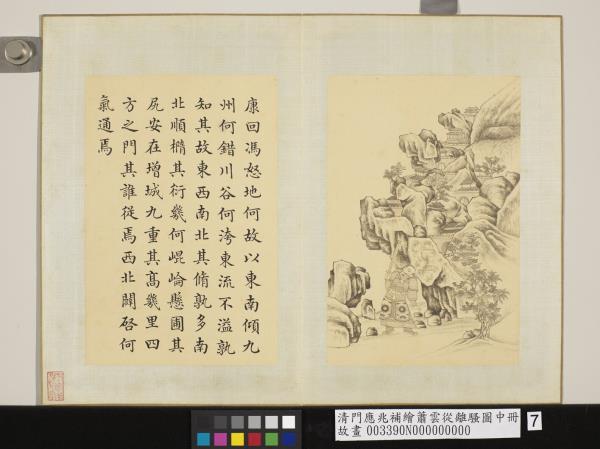 康回馮怒地何故以東南傾九
州何錯川谷何洿東流不溢孰
知其故東西南北其脩孰多南
北順橢其衍幾何崐崘懸圃其
尻安在增城九重其高幾里四
方之門其誰從焉西北闢啓何
氣通焉
清門應兆補繪蕭雲從離騷圖中冊
故畫 003390N000000000
7